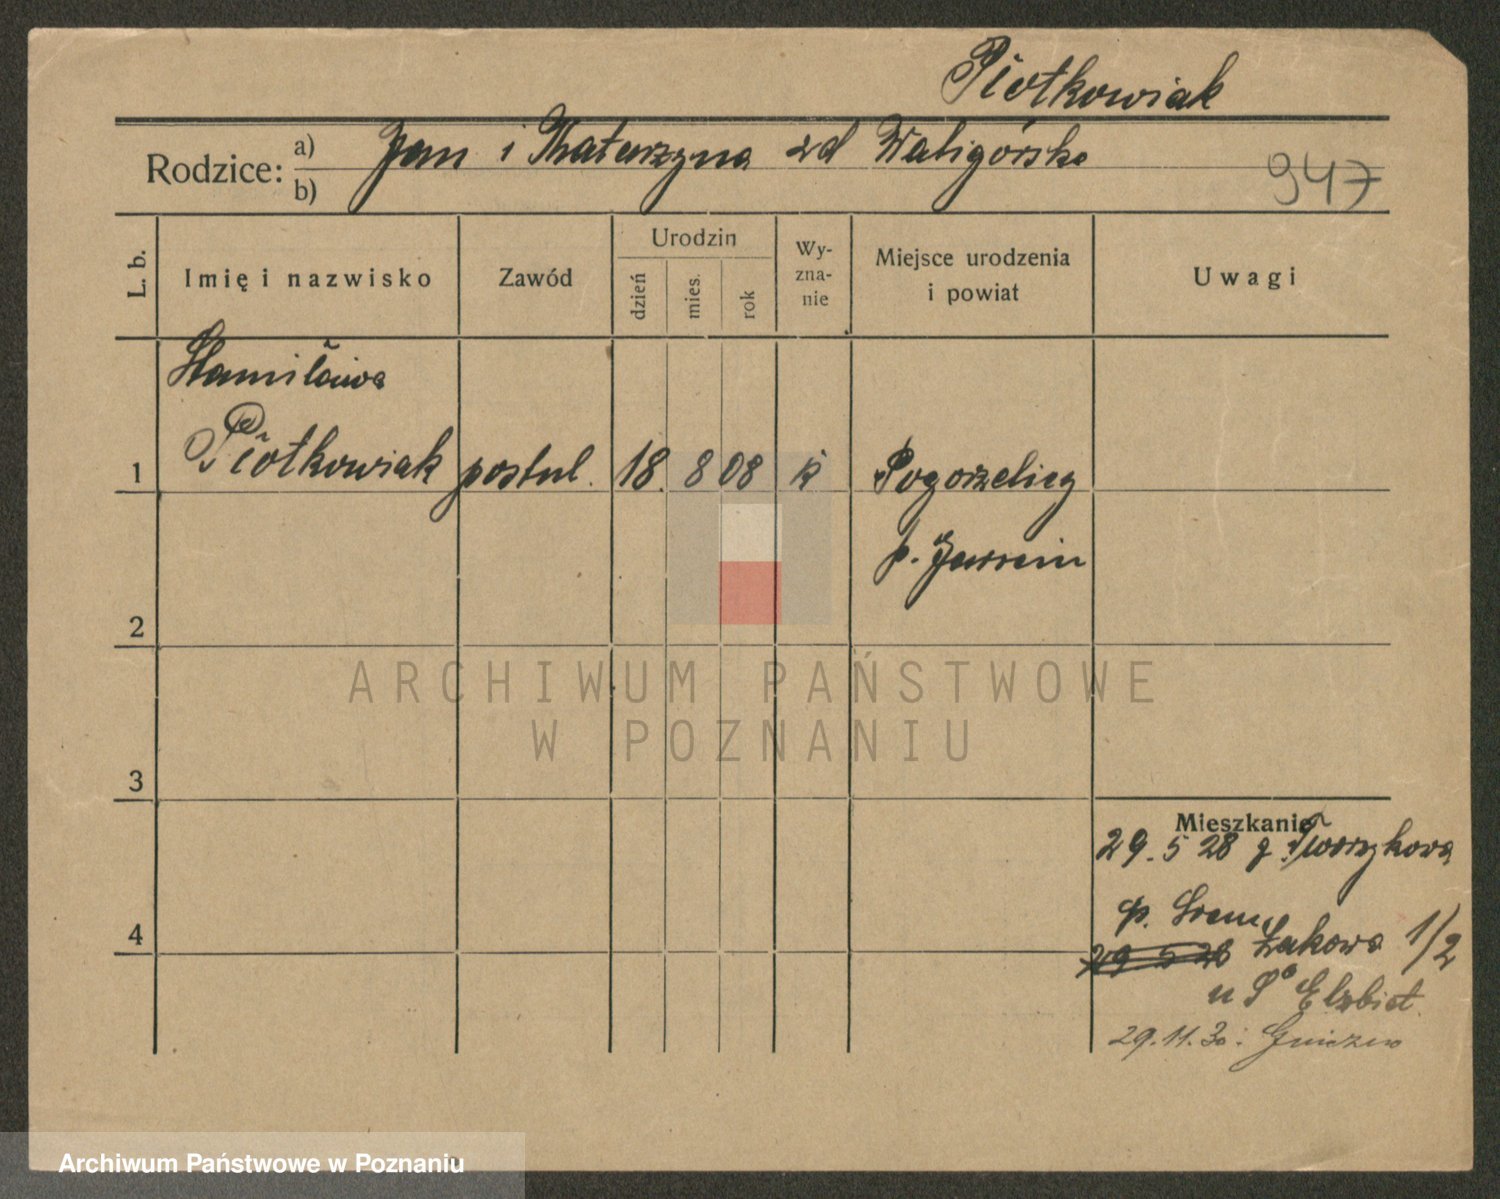 Piotkowiak
Rodzice: a) Jan i Katarzyna zd Waligórska
b)
947
L. b.
Imię i nazwisko
Zawód
Urodzin
dzień
mies.
rok
Wy-
zna-
nie
Miejsce urodzenia
i powiat
Uwagi
Stanisława
1 Piotkowiak postul. 18. 8 08 k Pogorzelicy
p. Jarocin
2
ARCHIWUM PAŃSTWOWE
W POZNANIU
3
Mieszkanie
29. 5 28 z Tworzykowa
p. Śrem
4 29 5 28 Łąkowa 1/2
u S Elżbiet.
29.11.30. Gniezno
Archiwum Państwowe w Poznaniu